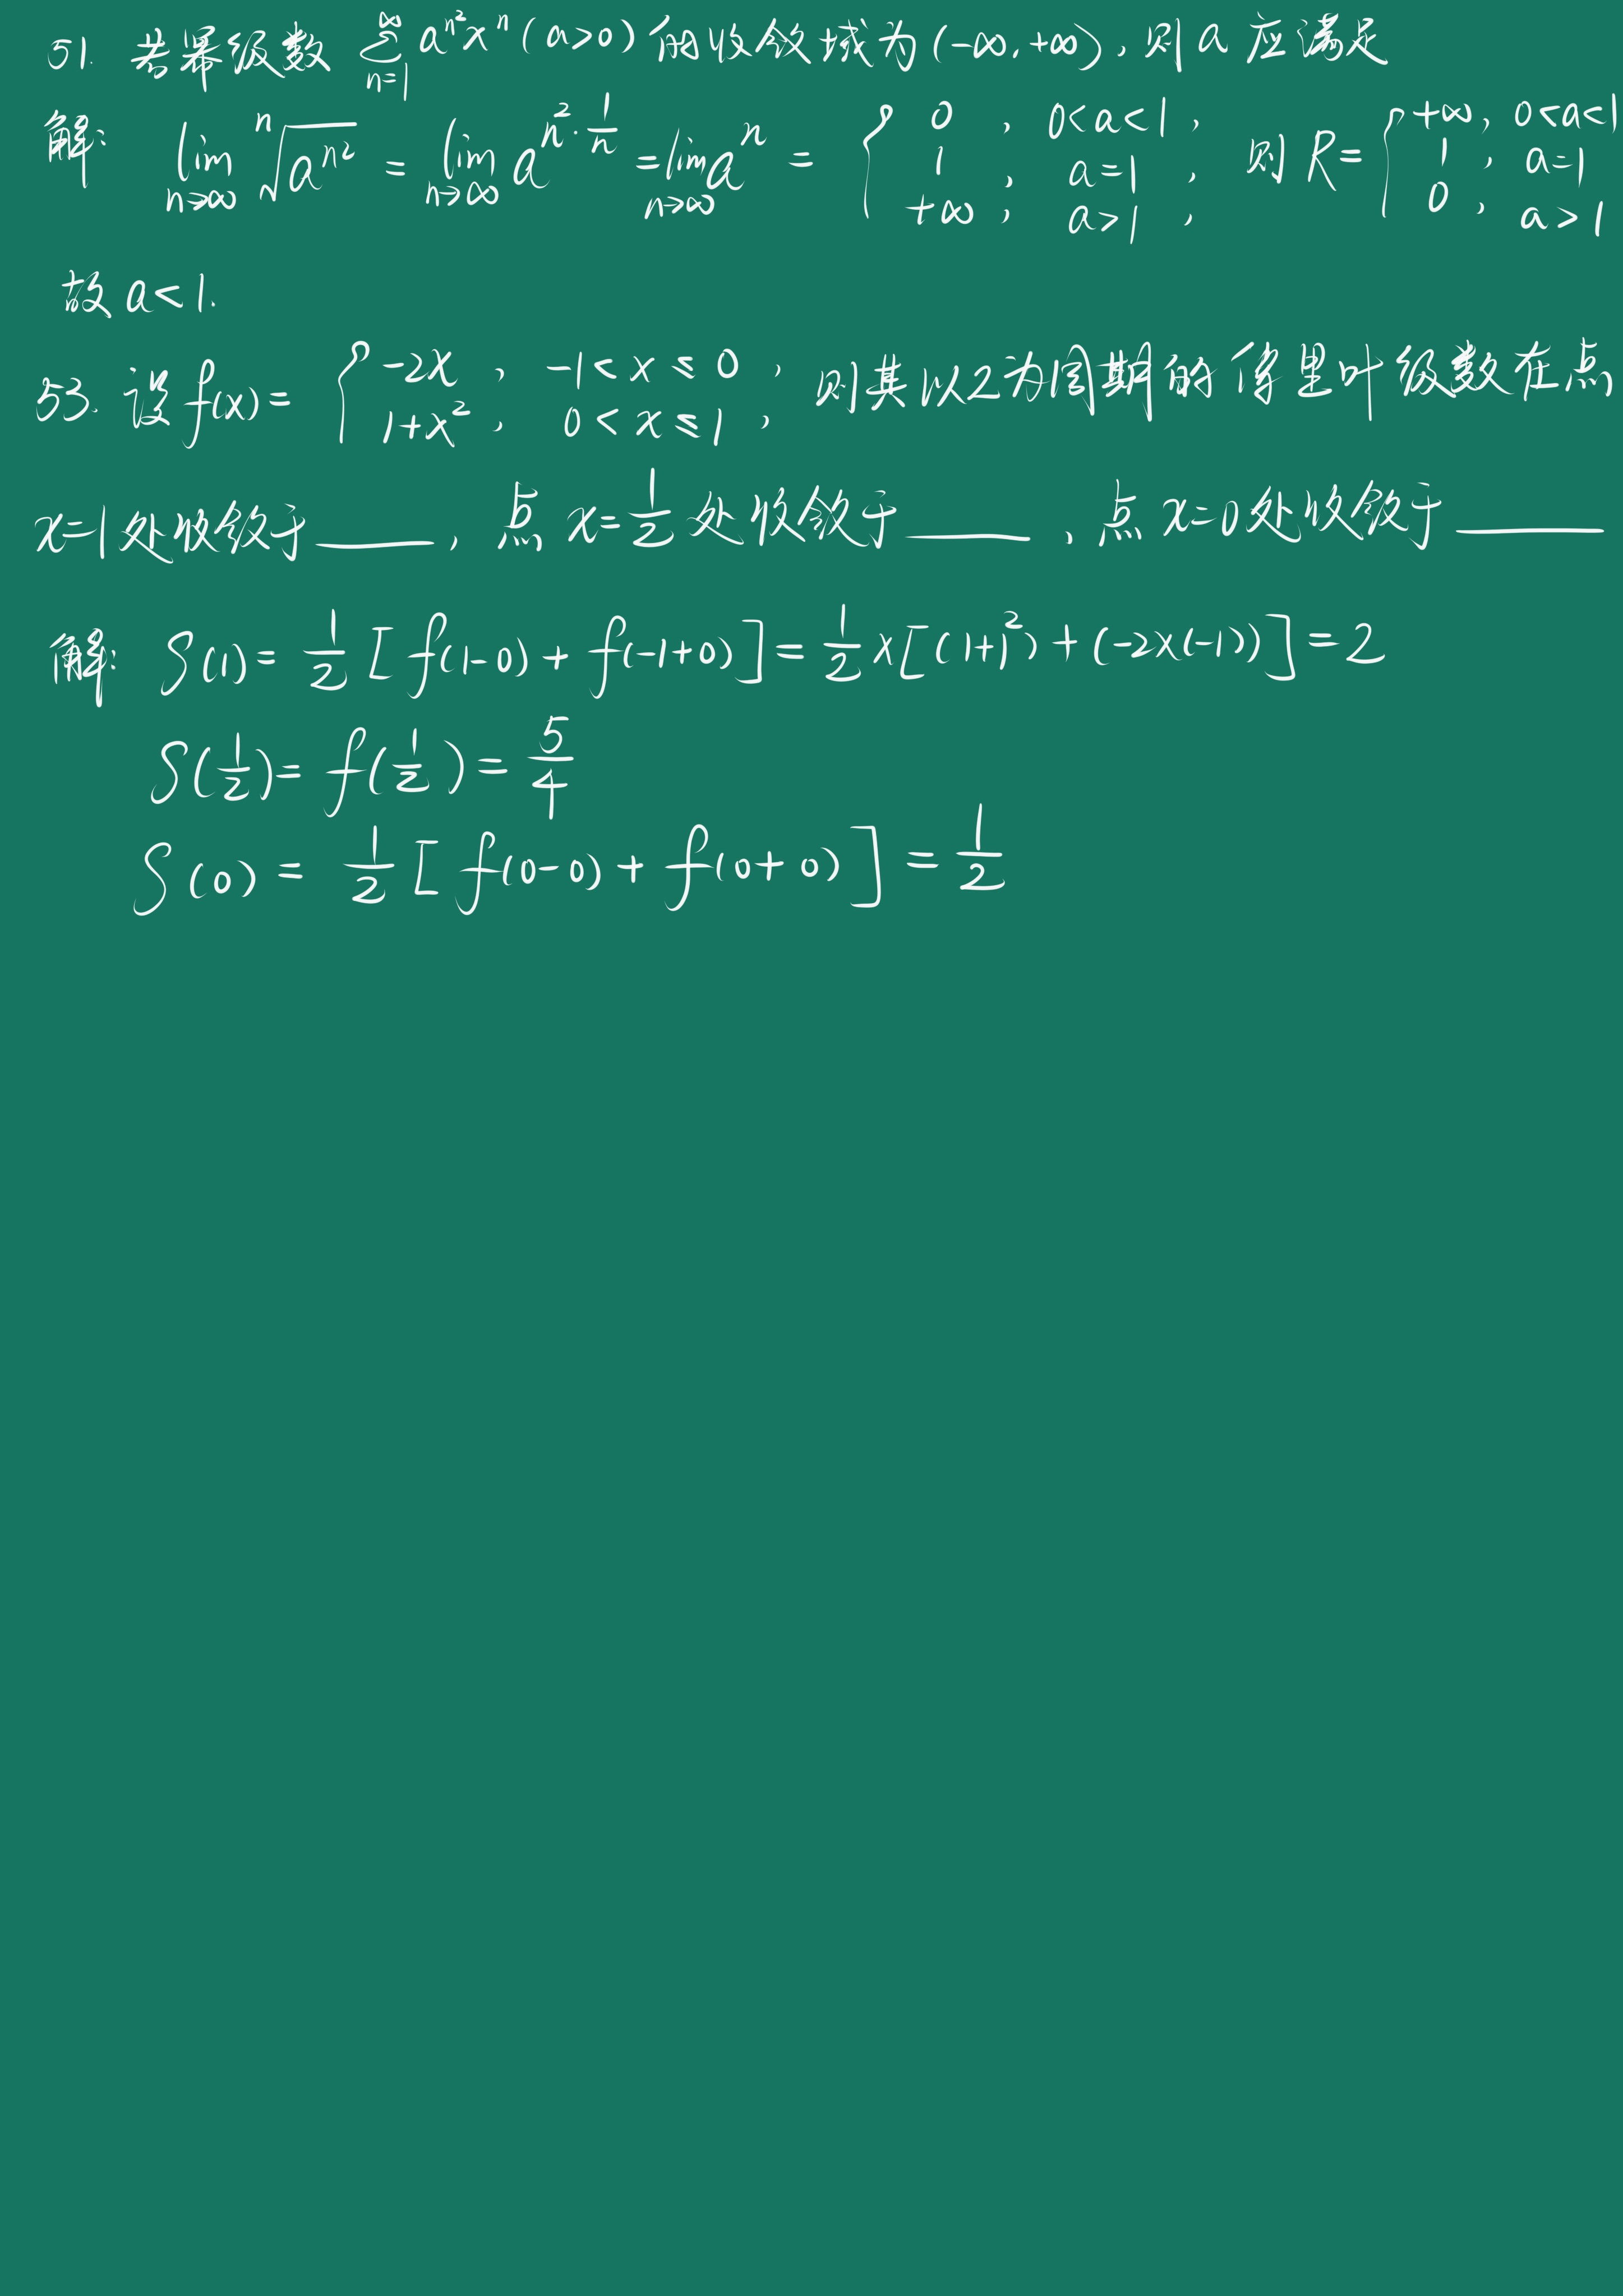 51. 若幂级数 $\sum_{n=1}^{\infty} a^{n^2} x^n (a>0)$ 的收敛域为 $(-\infty, +\infty)$, 则 a 应满足
解: $\lim_{n\to\infty} \sqrt[n]{a^{n^2}} = \lim_{n\to\infty} a^{n^2 \cdot \frac{1}{n}} = \lim_{n\to\infty} a^n = \begin{cases} 0, & 0<a<1, \\ 1, & a=1, \\ +\infty, & a>1, \end{cases}$ 则 $R = \begin{cases} +\infty, & 0<a<1 \\ 1, & a=1 \\ 0, & a>1 \end{cases}$
故 $a<1$.
53. 设 $f(x) = \begin{cases} -2x, & -1<x\leq 0, \\ 1+x^2, & 0<x\leq 1, \end{cases}$ 则其以2为周期的傅里叶级数在点
$x=1$ 处收敛于 ______, 点 $x=\frac{1}{2}$ 处收敛于 ______, 点 $x=0$ 处收敛于 ______
解: $S(1) = \frac{1}{2}[f(1-0)+f(-1+0)] = \frac{1}{2} \times [(1+1^2)+(-2\times(-1))] = 2$
$S(\frac{1}{2}) = f(\frac{1}{2}) = \frac{5}{4}$
$S(0) = \frac{1}{2}[f(0-0)+f(0+0)] = \frac{1}{2}$